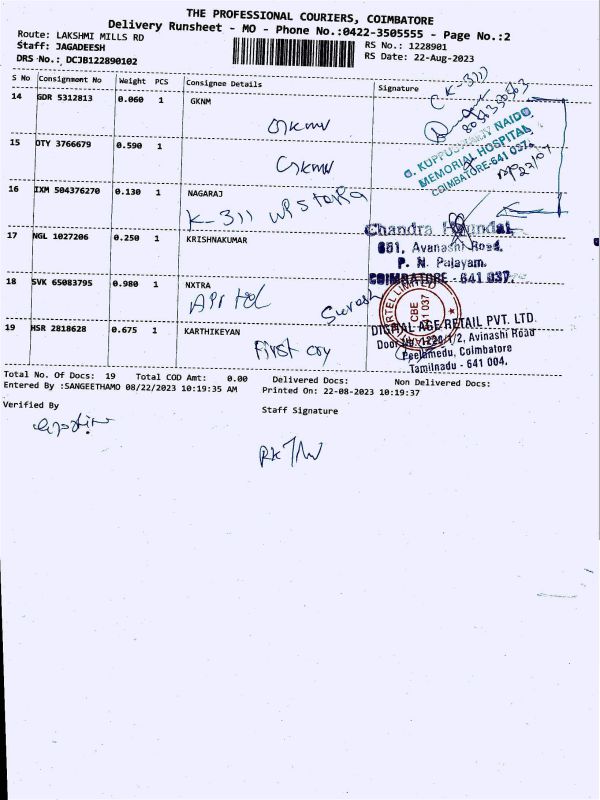 THE PROFESSIONAL COURIERS, COIMBATORE
Delivery Runsheet - MO - Phone No.:0422-3505555 - Page No.:2
Route: LAKSHMI MILLS RD
Staff: JAGADEESH
DRS No.: DCJB122890102
RS No.: 1228901
RS Date: 22-Aug-2023
S No Consignment No Weight PCS Consignee Details Signature
14 GDR 5312813 0.060 1 GKNM
GKNM
K-311
15 OTY 3766679 0.590 1
GKNM
G. KUPPUSWAMY NAIDU
MEMORIAL HOSPITAL
COIMBATORE-641 037.
16 IXM 504376270 0.130 1 NAGARAJ
K-311
17 NGL 1027206 0.250 1 KRISHNAKUMAR
Chandra
681, Avanashi Road,
P. N. Palayam,
COIMBATORE - 641 037.
18 SVK 65083795 0.980 1 NXTRA
Airtel
Suresh
AIRTEL LIMITED
CBE
641 037
19 HSR 2818628 0.675 1 KARTHIKEYAN
First cry
DIGITAL AGE RETAIL PVT. LTD.
Avinashi Road
Peelamedu, Coimbatore
Tamilnadu - 641 004.
Total No. Of Docs: 19 Total COD Amt: 0.00 Delivered Docs: Non Delivered Docs:
Entered By :SANGEETHAMO 08/22/2023 10:19:35 AM Printed On: 22-08-2023 10:19:37
Verified By
Staff Signature